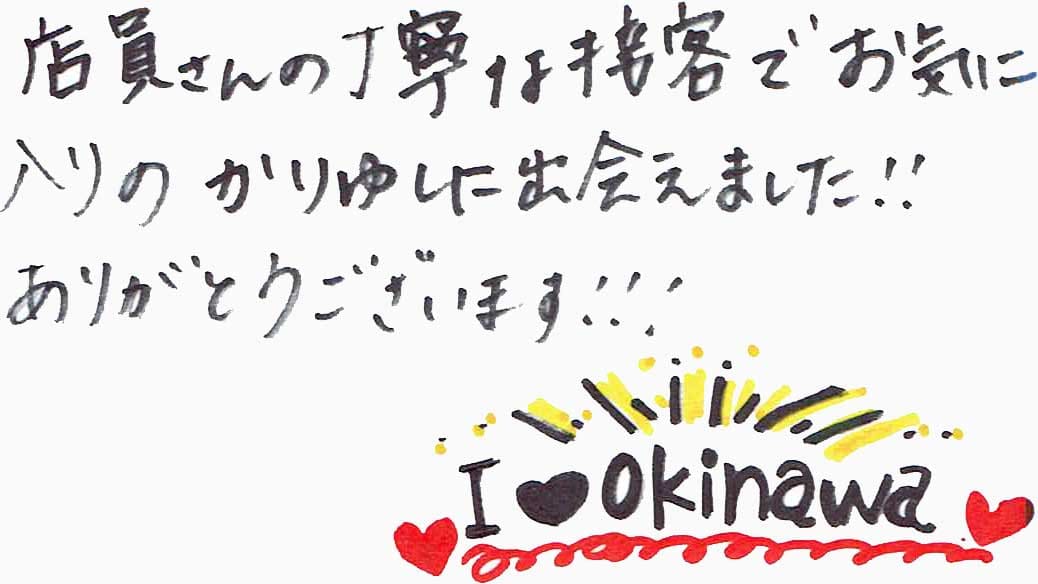 店員さんの丁寧な接客でお気に
入りのかりゆしに出会えました!!
ありがとうございます!!!
I ♥ Okinawa